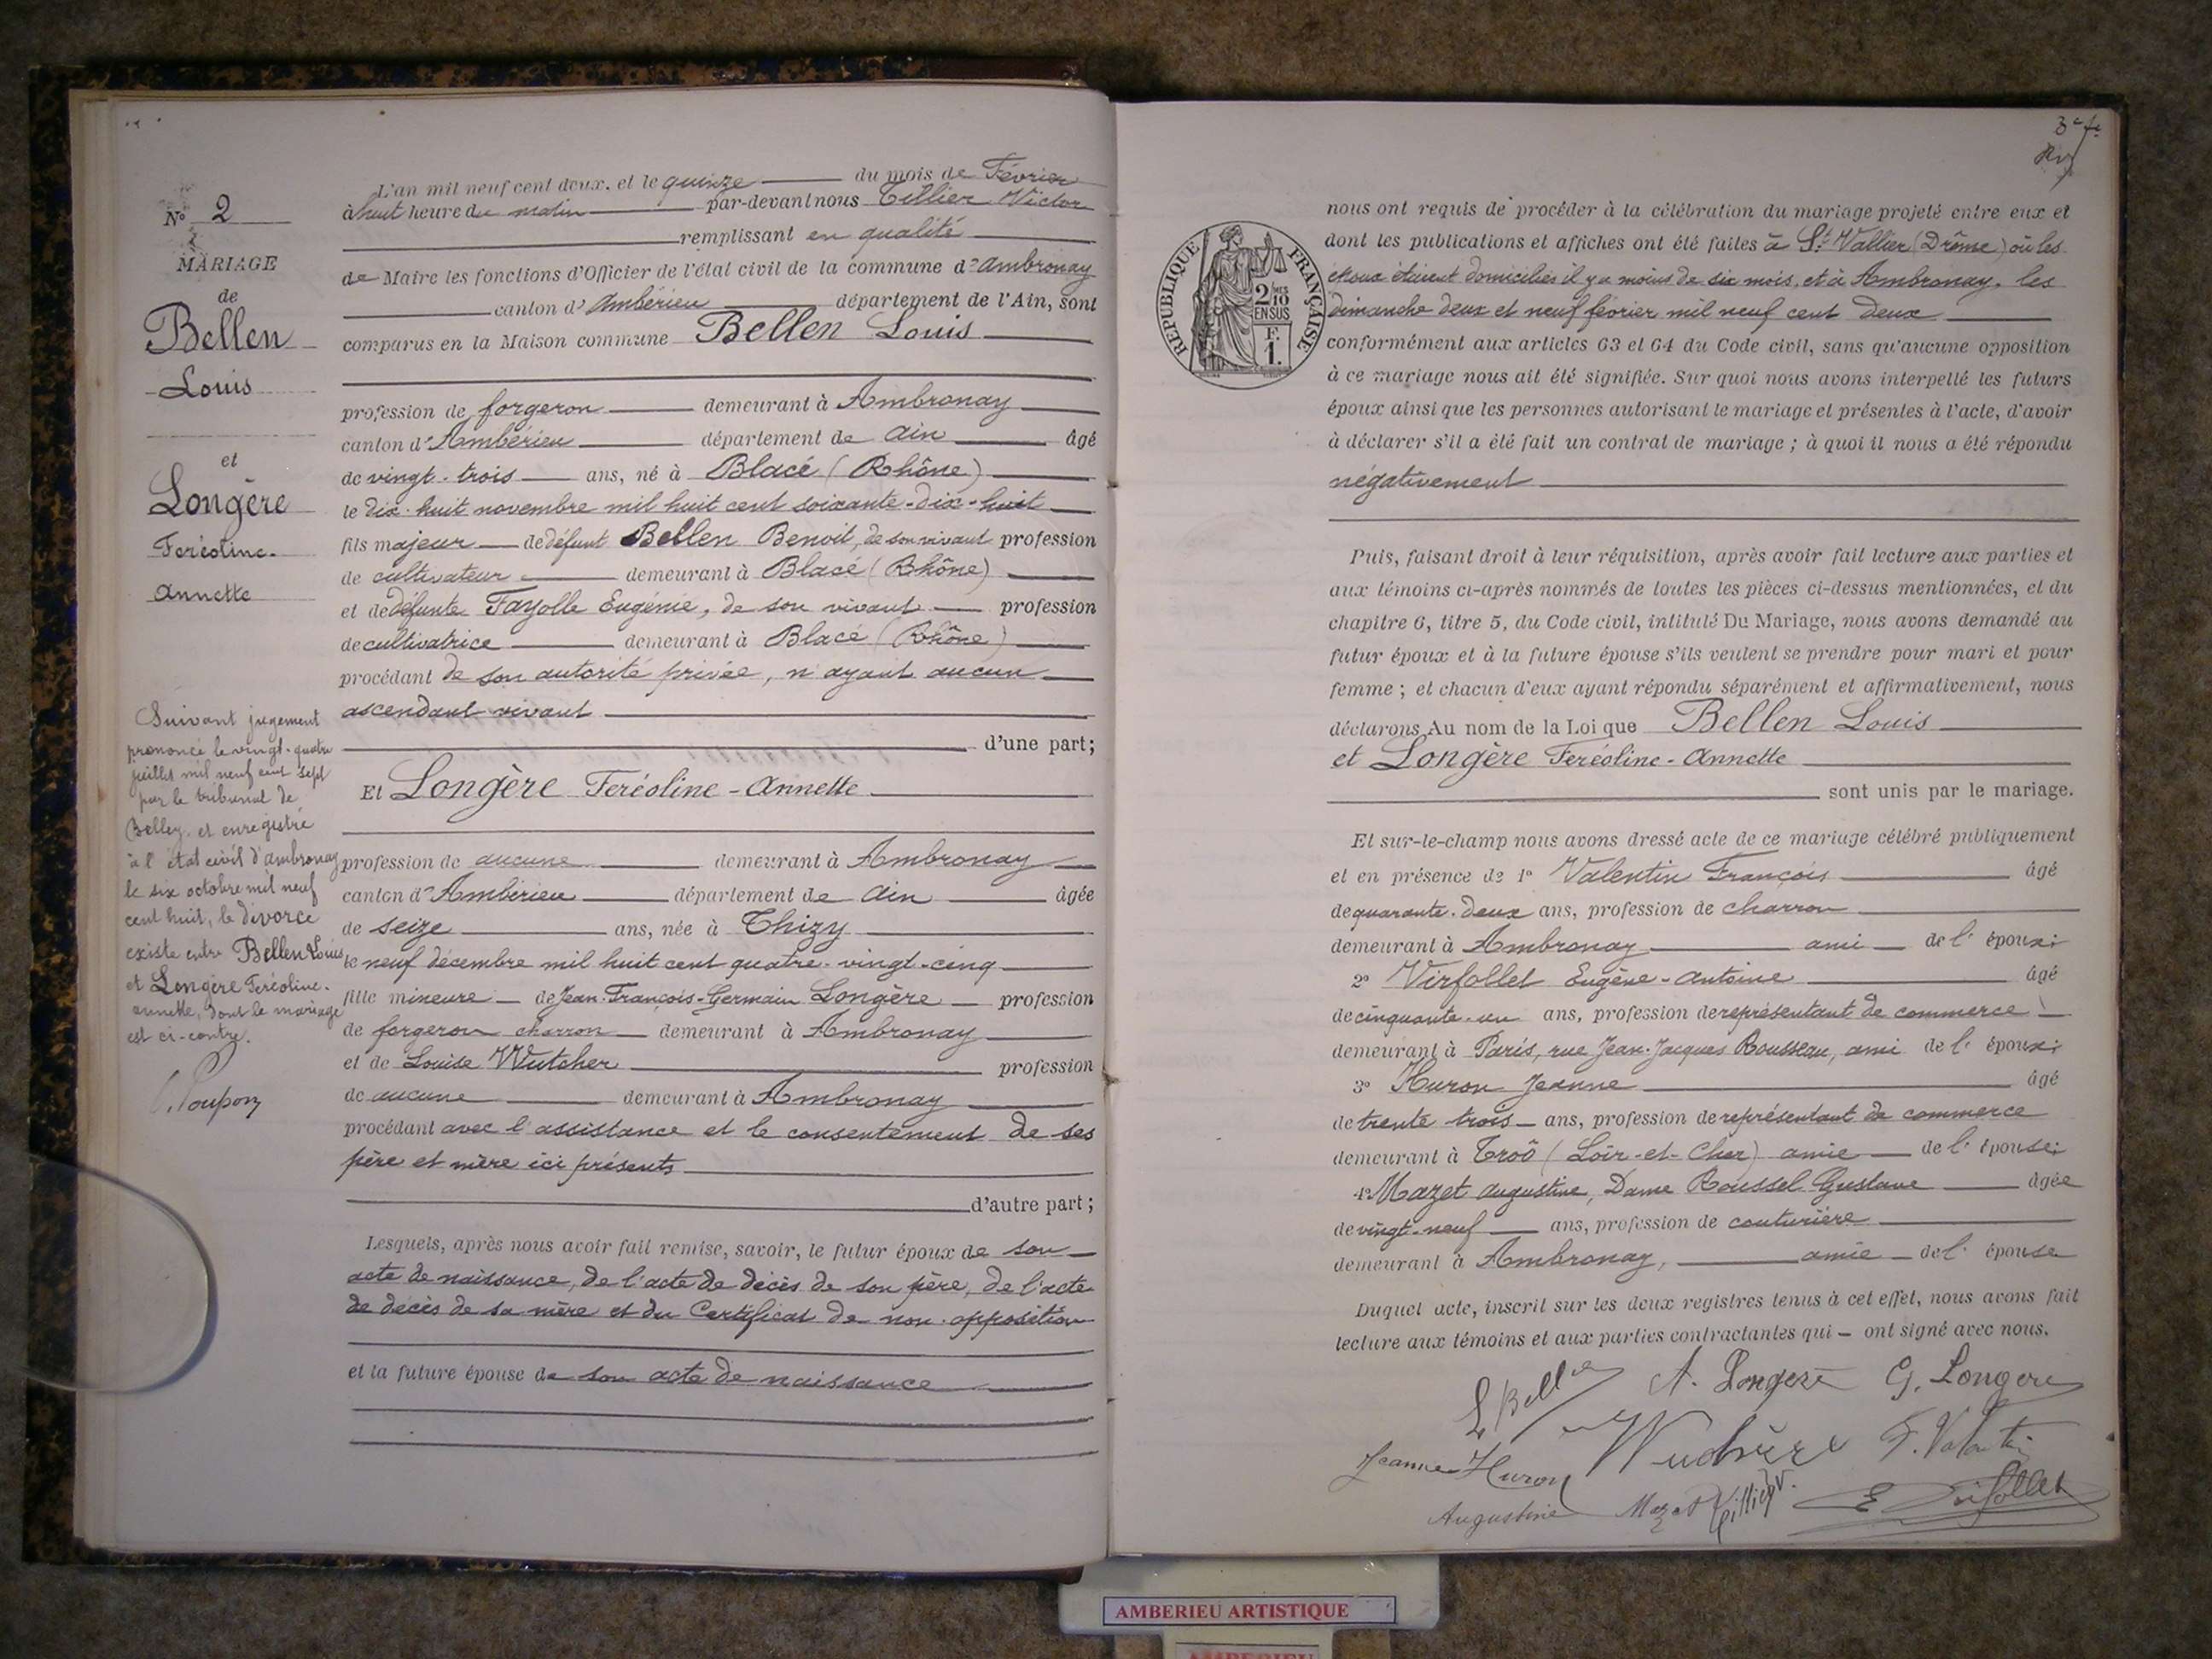 N° 2
MARIAGE
de
Bellen
Louis
et
Longère
Feréoline-
Annette
Suivant jugement
prononcé le vingt-quatre
juillet mil neuf cent sept
par le tribunal de
Belley et enregistré
à l'état civil d'Ambronay
le six octobre mil neuf
cent huit, le divorce
existe entre Bellen Louis
et Longère Feréoline-
Annette, dont le mariage
est ci-contre.
L'an mil neuf cent deux, et le quinze du mois de Février
à huit heure du matin par-devant nous Tillier Victor
remplissant en qualité
de Maire les fonctions d'Officier de l'état civil de la commune d'Ambronay
canton d'Ambérieu département de l'Ain, sont
comparus en la Maison commune Bellen Louis
profession de forgeron demeurant à Ambronay
canton d'Ambérieu département de Ain âgé
de vingt-trois ans, né à Blacé (Rhône)
le dix-huit novembre mil huit cent soixante-dix-huit
fils majeur de défunt Bellen Benoit, de son vivant profession
de cultivateur demeurant à Blacé (Rhône)
et de défunte Fayolle Eugénie, de son vivant profession
de cultivatrice demeurant à Blacé (Rhône)
procédant de son autorité privée, n'ayant aucun
ascendant vivant
d'une part;
Et Longère Feréoline-Annette
profession de aucune demeurant à Ambronay
canton d'Ambérieu département de Ain âgée
de seize ans, née à Thizy
le neuf décembre mil huit cent quatre-vingt-cinq
fille mineure de Jean-François-Germain Longère profession
de forgeron charron demeurant à Ambronay
et de Louise Wutcher profession
de aucune demeurant à Ambronay
procédant avec l'assistance et le consentement de ses
père et mère ici présents
d'autre part;
Lesquels, après nous avoir fait remise, savoir, le futur époux de son
acte de naissance, de l'acte de décès de son père, de l'acte
de décès de sa mère et du Certificat de non-opposition
et la future épouse de son acte de naissance
3e fe
RÉPUBLIQUE FRANÇAISE
2 MES
10
EN SUS
F.
1.
nous ont requis de procéder à la célébration du mariage projeté entre eux et
dont les publications et affiches ont été faites à St Vallier (Drôme) où les
époux étaient domiciliés il y a moins de six mois, et à Ambronay, les
dimanche deux et neuf février mil neuf cent deux
conformément aux articles 63 et 64 du Code civil, sans qu'aucune opposition
à ce mariage nous ait été signifiée. Sur quoi nous avons interpellé les futurs
époux ainsi que les personnes autorisant le mariage et présentes à l'acte, d'avoir
à déclarer s'il a été fait un contrat de mariage ; à quoi il nous a été répondu
négativement
Puis, faisant droit à leur réquisition, après avoir fait lecture aux parties et
aux témoins ci-après nommés de toutes les pièces ci-dessus mentionnées, et du
chapitre 6, titre 5, du Code civil, intitulé Du Mariage, nous avons demandé au
futur époux et à la future épouse s'ils veulent se prendre pour mari et pour
femme ; et chacun d'eux ayant répondu séparément et affirmativement, nous
déclarons Au nom de la Loi que Bellen Louis
et Longère Feréoline-Annette
sont unis par le mariage.
Et sur-le-champ nous avons dressé acte de ce mariage célébré publiquement
et en présence de 1° Valentin François âgé
de quarante-deux ans, profession de charron
demeurant à Ambronay ami de l' époux;
2° Virfollet Eugène-Antoine âgé
de cinquante-un ans, profession de représentant de commerce
demeurant à Paris, rue Jean-Jacques Rousseau, ami de l' époux;
3° Huron Jeanne âgé
de trente-trois ans, profession de représentant de commerce
demeurant à Troô (Loir-et-Cher) amie de l' épouse;
4° Mazet Augustine, Dame Roussel Gustave âgée
de vingt-neuf ans, profession de couturière
demeurant à Ambronay, amie de l' épouse
Duquel acte, inscrit sur les deux registres tenus à cet effet, nous avons fait
lecture aux témoins et aux parties contractantes qui – ont signé avec nous.
L Bellen A. Longere G. Longere
F. Valentin
Jeanne Huron
Augustine Mazet Tillier V.
AMBERIEU ARTISTIQUE
AMBERIEU